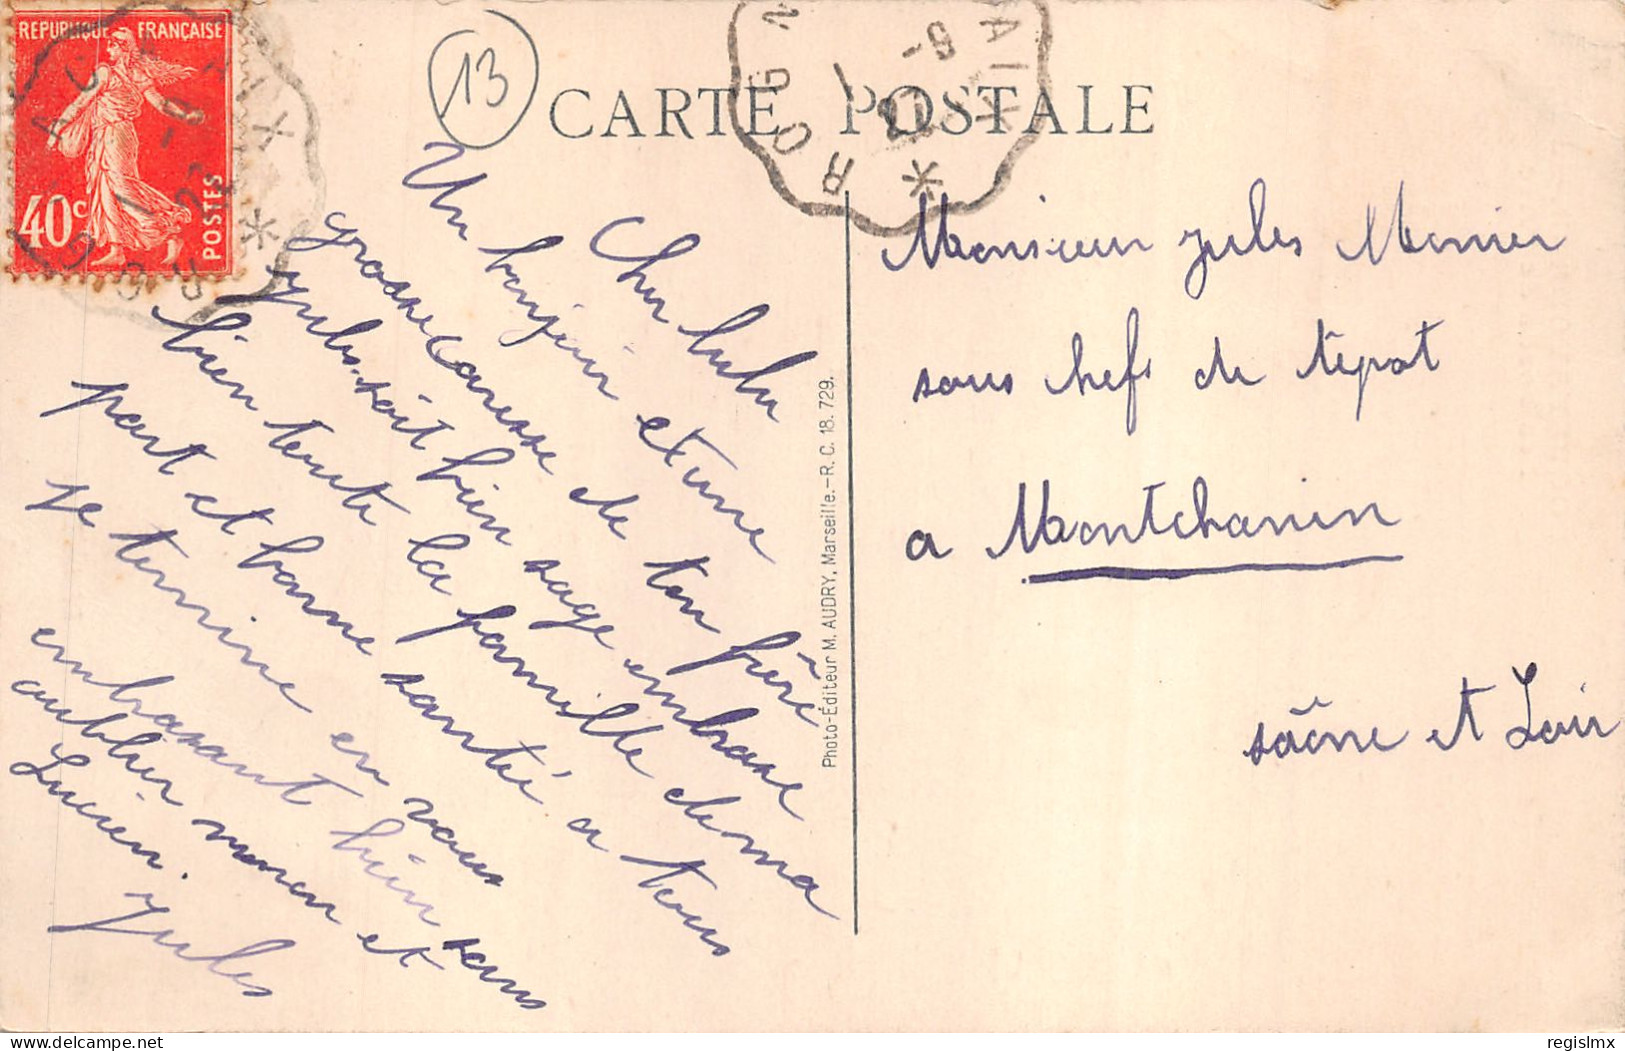 REPUBLIQUE FRANÇAISE
40c
POSTES
13
CARTE POSTALE
Cher lulu
Un bonjour et une
grosse caresse de ton frère
jules. soit bien sage embrase
bien toute la famille de ma
part et bonne santé a tous
je termine en vous
embrasant bien sans
oublier et
Lucien.
Jules
Photo-Éditeur M. AUDRY, Marseille.-R. C. 18.729.
Monsieur Jules Monier
sous chefs de depot
a Montchanin
saône et Loir
regislmx
delcampe.net